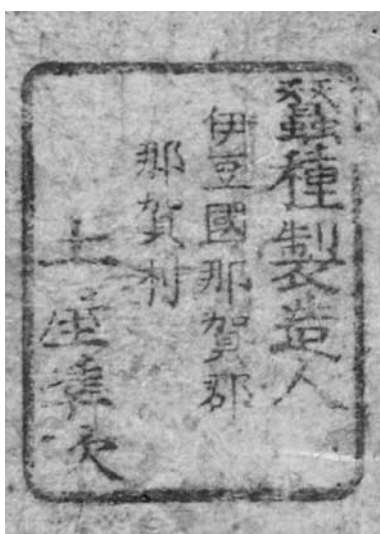 蠶種製造人
伊豆國那賀郡
那賀村
土屋